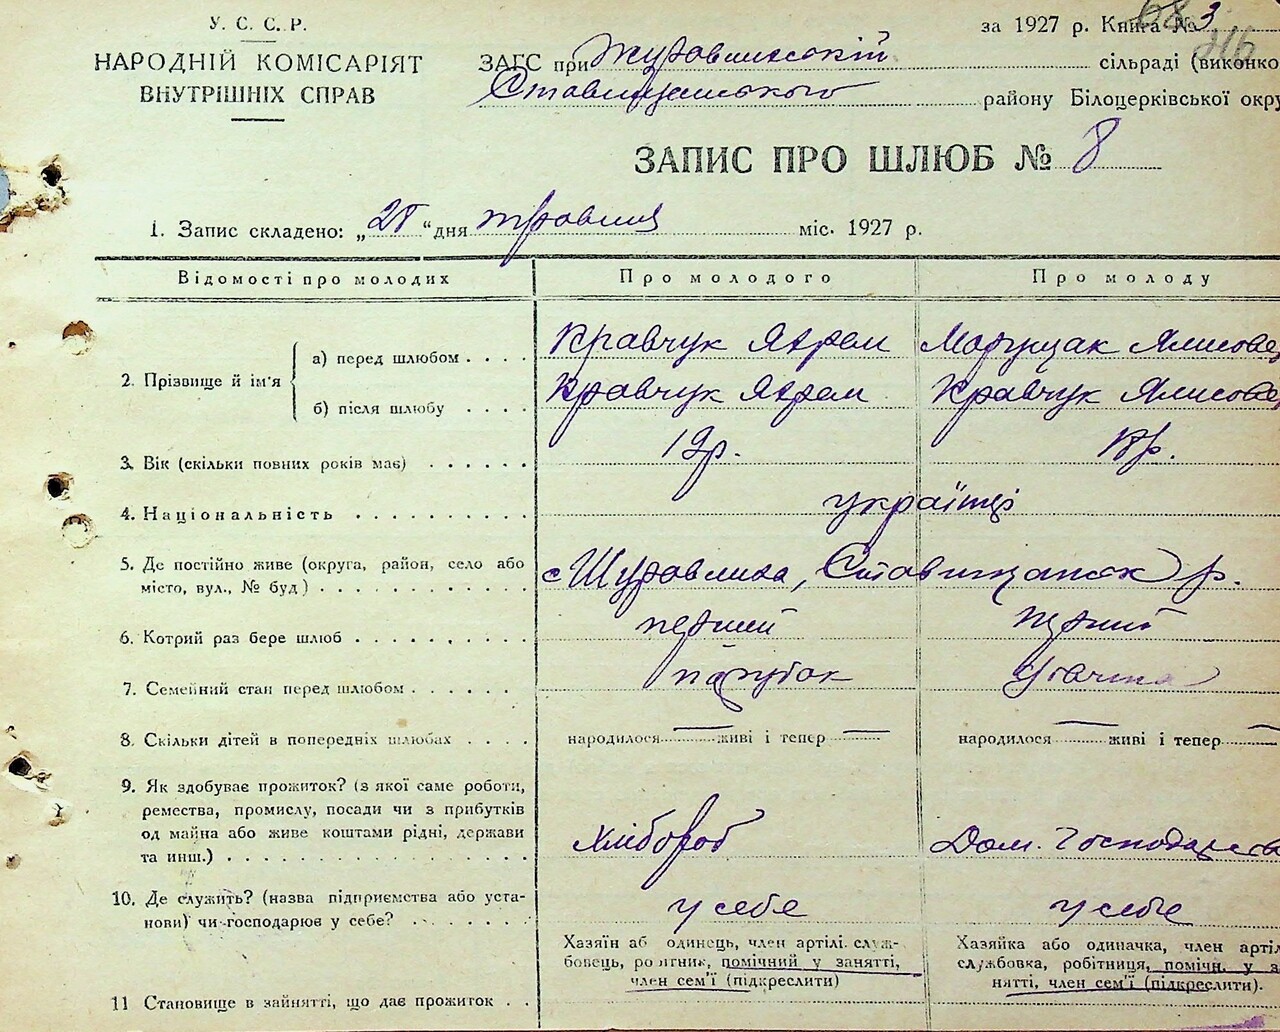 У. С. С. Р.
НАРОДНІЙ КОМІСАРІЯТ
ВНУТРІШНІХ СПРАВ
за 1927 р. Книга № 3
ЗАГС при Журавлиській сільраді (виконко
Ставищанського району Білоцерківської окру
ЗАПИС ПРО ШЛЮБ № 8
1. Запис складено: „ “ дня травня міс. 1927 р.
Відомості про молодих
Про молодого
Про молоду
2. Прізвище й ім'я
а) перед шлюбом . . . .
Кравчук Яхрем
Марущак Ялисове
б) після шлюбу . . . .
Кравчук Яхрем
Кравчук Ялисове
3. Вік (скільки повних років має) . . . . . .
19р.
4. Національність . . . . . . . . . .
українці
5. Де постійно живе (округа, район, село або
місто, вул., № буд) . . . . . . . . . . . .
с Журавлиха, Ставищанськ р.
6. Котрий раз бере шлюб . . . . . . . . . .
перший
перший
7. Семейний стан перед шлюбом . . . . . .
парубок
дівчина
8. Скільки дітей в попередніх шлюбах . . . .
народилося — живі і тепер —
народилося — живі і тепер
9. Як здобуває прожиток? (з якої саме роботи,
ремества, промислу, посади чи з прибутків
од майна або живе коштами рідні, держави
та инш.) . . . . . . . . . . . . . . . .
Хлібороб
Дом. Господарства
10. Де служить? (назва підприємства або уста-
нови) чи господарює у себе? . . . . . .
у себе
у себе
Хазяїн аб одинець, член артілі. служ-
бовець, ро ітник, помічний у занятті,
член сем'ї (підкреслити)
Хазяйка або одиначка, член артіл
службовка, робітниця, помічн. у за
нятті, член сем'ї (підкреслити).
11 Становище в зайнятті, що дає прожиток . .